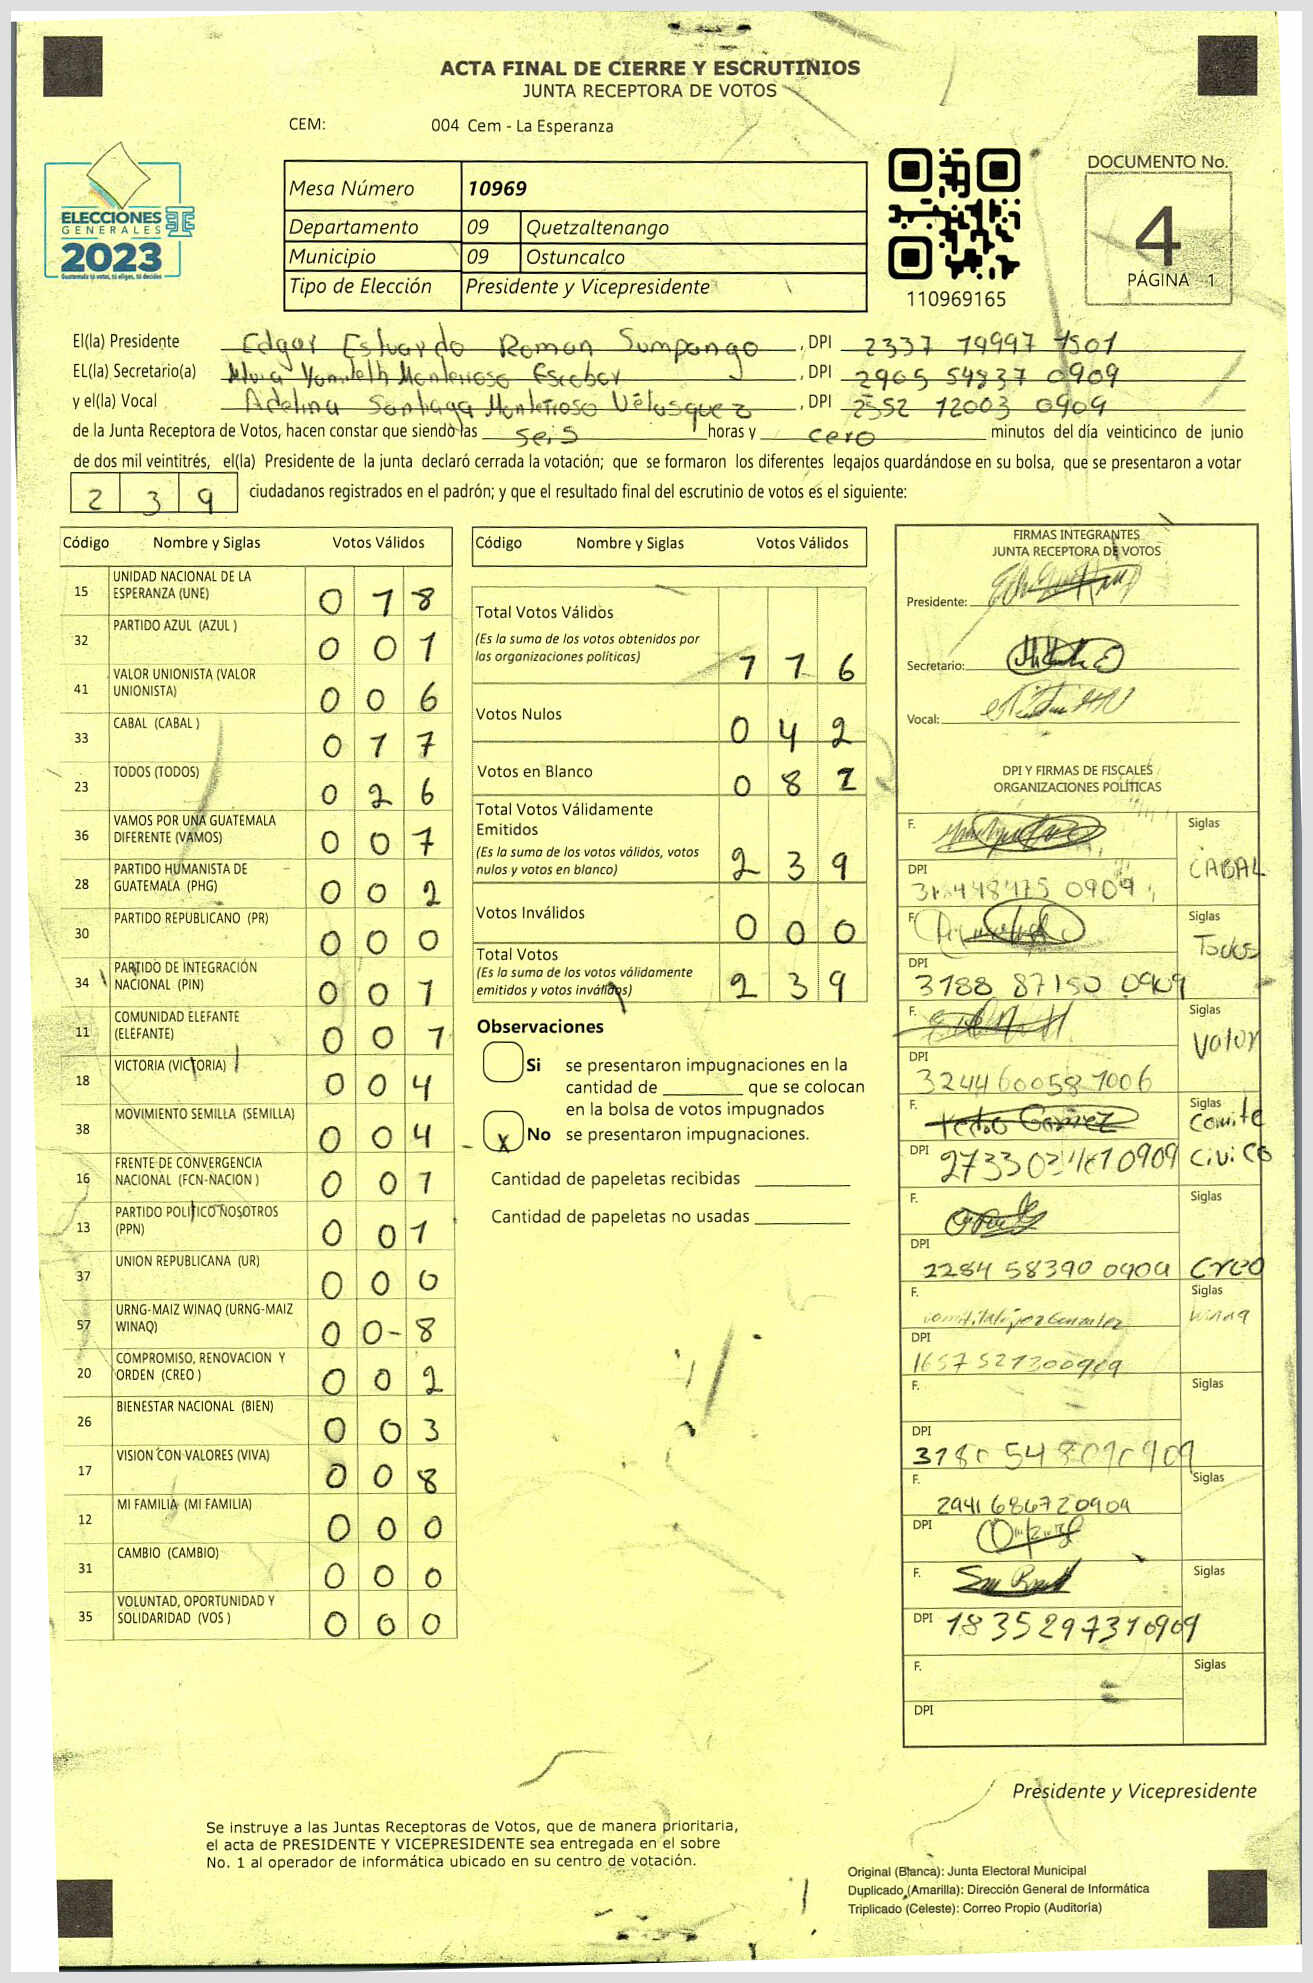 ACTA FINAL DE CIERRE Y ESCRUTINIOS
JUNTA RECEPTORA DE VOTOS
CEM: 004 Cem - La Esperanza
ELECCIONES
GENERALES
2023
Guatemala tú votas, tú eliges, tú decides
Mesa Número 10969
Departamento 09 Quetzaltenango
Municipio 09 Ostuncalco
Tipo de Elección Presidente y Vicepresidente
110969165
DOCUMENTO No.
4
PÁGINA 1
El(la) Presidente Edgar Estuardo Roman Sumpango, DPI 2337 19997 1501
EL(la) Secretario(a) Yamileth Monterroso Escobar, DPI 2905 54837 0909
y el(la) Vocal Adelina Santiaga Monterroso Vélasquez, DPI 2552 12003 0909
de la Junta Receptora de Votos, hacen constar que siendo las seis horas y cero minutos del día veinticinco de junio
de dos mil veintitrés, el(la) Presidente de la junta declaró cerrada la votación; que se formaron los diferentes legajos guardándose en su bolsa, que se presentaron a votar
2 3 9 ciudadanos registrados en el padrón; y que el resultado final del escrutinio de votos es el siguiente:
Código Nombre y Siglas Votos Válidos
15 UNIDAD NACIONAL DE LA ESPERANZA (UNE) 0 1 8
32 PARTIDO AZUL (AZUL ) 0 0 1
41 VALOR UNIONISTA (VALOR UNIONISTA) 0 0 6
33 CABAL (CABAL ) 0 1 7
23 TODOS (TODOS) 0 2 6
36 VAMOS POR UNA GUATEMALA DIFERENTE (VAMOS) 0 0 7
28 PARTIDO HUMANISTA DE GUATEMALA (PHG) 0 0 2
30 PARTIDO REPUBLICANO (PR) 0 0 0
34 PARTIDO DE INTEGRACIÓN NACIONAL (PIN) 0 0 1
11 COMUNIDAD ELEFANTE (ELEFANTE) 0 0 7
18 VICTORIA (VICTORIA) 0 0 4
38 MOVIMIENTO SEMILLA (SEMILLA) 0 0 4
16 FRENTE DE CONVERGENCIA NACIONAL (FCN-NACION ) 0 0 1
13 PARTIDO POLITICO NOSOTROS (PPN) 0 0 1
37 UNION REPUBLICANA (UR) 0 0 0
57 URNG-MAIZ WINAQ (URNG-MAIZ WINAQ) 0 0-8
20 COMPROMISO, RENOVACION Y ORDEN (CREO ) 0 0 2
26 BIENESTAR NACIONAL (BIEN) 0 0 3
17 VISION CON VALORES (VIVA) 0 0 8
12 MI FAMILIA (MI FAMILIA) 0 0 0
31 CAMBIO (CAMBIO) 0 0 0
35 VOLUNTAD, OPORTUNIDAD Y SOLIDARIDAD (VOS ) 0 0 0
Código Nombre y Siglas Votos Válidos
Total Votos Válidos
(Es la suma de los votos obtenidos por
las organizaciones políticas) 1 1 6
Votos Nulos 0 4 2
Votos en Blanco 0 8 1
Total Votos Válidamente
Emitidos
(Es la suma de los votos válidos, votos
nulos y votos en blanco) 2 3 9
Votos Inválidos 0 0 0
Total Votos
(Es la suma de los votos válidamente
emitidos y votos inválidos) 2 3 9
Observaciones
Si se presentaron impugnaciones en la
cantidad de ________ que se colocan
en la bolsa de votos impugnados
x No se presentaron impugnaciones.
Cantidad de papeletas recibidas
Cantidad de papeletas no usadas
FIRMAS INTEGRANTES
JUNTA RECEPTORA DE VOTOS
Presidente:
Secretario:
Vocal:
DPI Y FIRMAS DE FISCALES
ORGANIZACIONES POLÍTICAS
F. Siglas
CABAL
DPI
F. Siglas
Todos
DPI
3188 87150 0909
F. Siglas
Valor
DPI
324460058 1006
F. Pedro Gamez Siglas
Comite
Civico
DPI
F. Siglas
DPI
2284 58390 0909 Creo
F. Siglas
Winaq
DPI
1657 521200909
F. Siglas
DPI
F. Siglas
2941 68672 0909
DPI
F. Siglas
DPI 1835297310909
F. Siglas
DPI
Presidente y Vicepresidente
Se instruye a las Juntas Receptoras de Votos, que de manera prioritaria,
el acta de PRESIDENTE Y VICEPRESIDENTE sea entregada en el sobre
No. 1 al operador de informática ubicado en su centro de votación.
Original (Blanca): Junta Electoral Municipal
Duplicado (Amarilla): Dirección General de Informática
Triplicado (Celeste): Correo Propio (Auditoría)